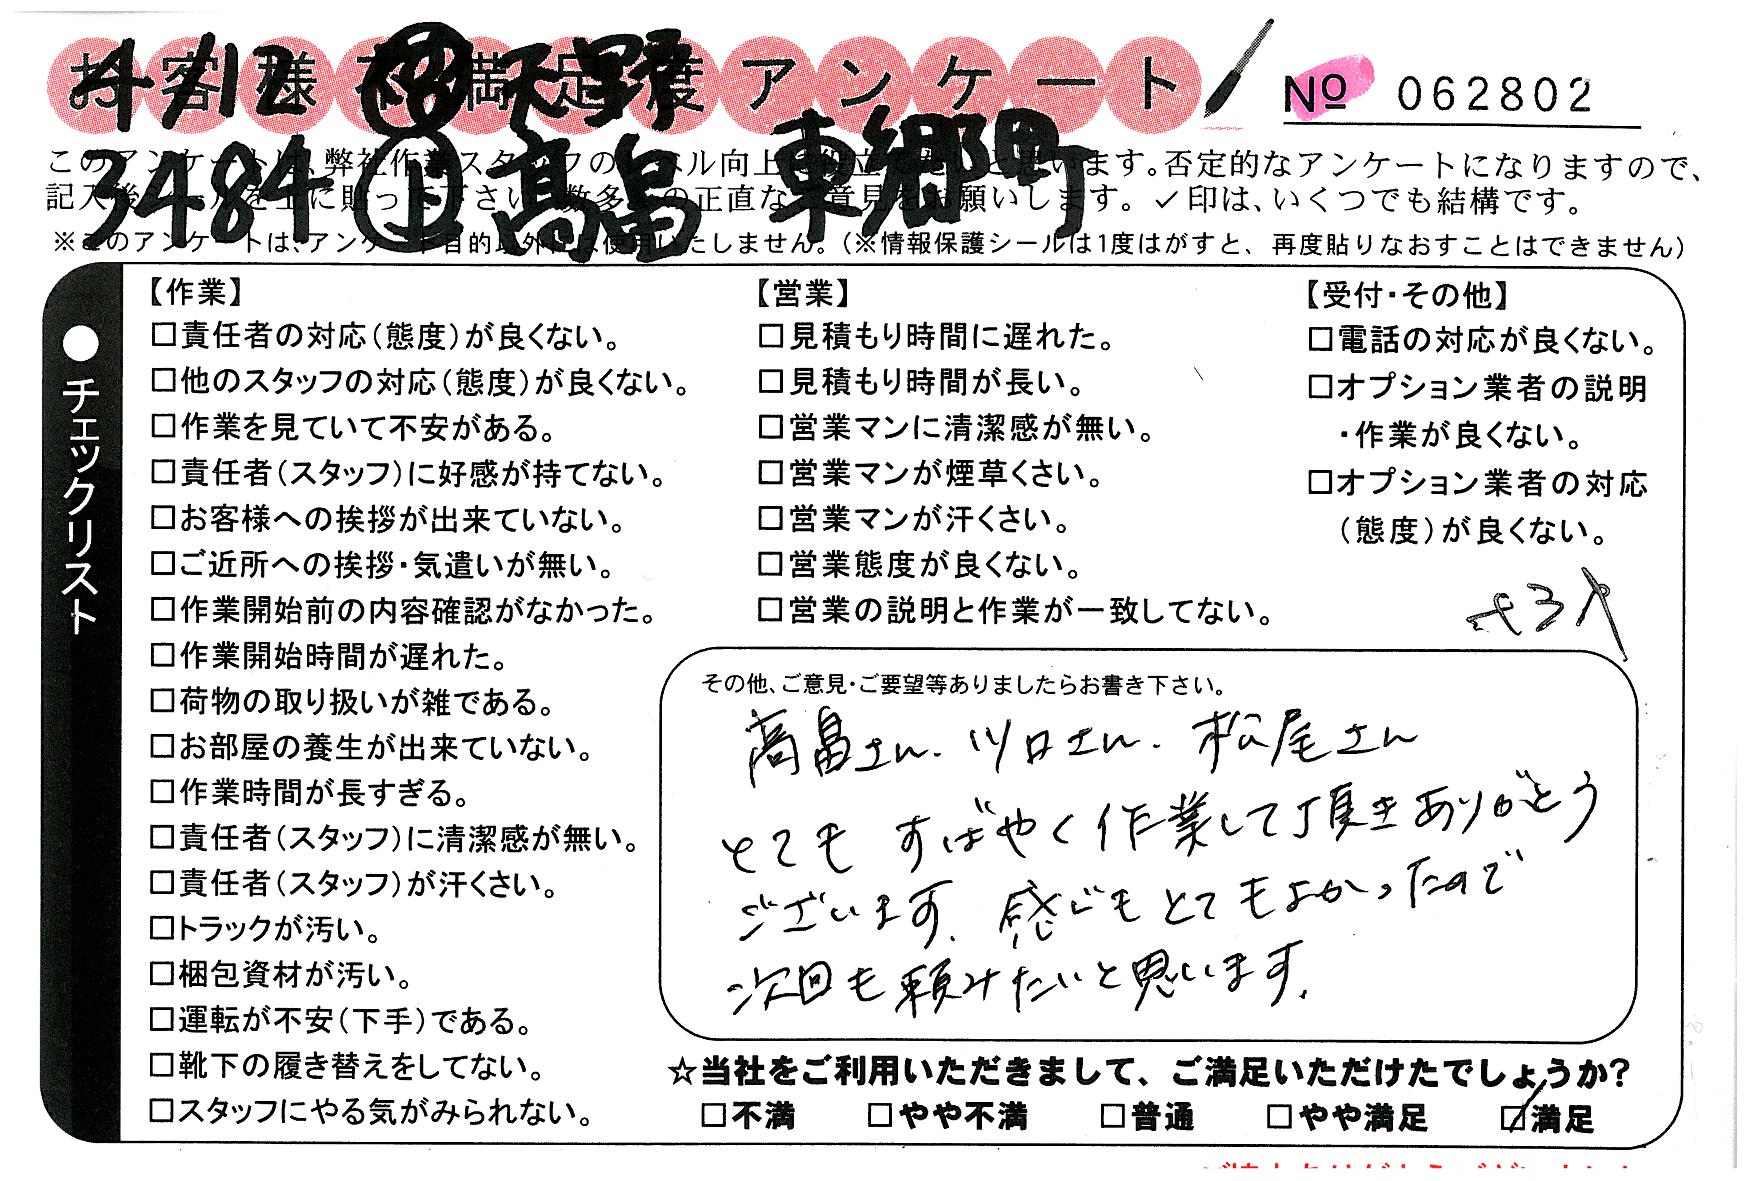 お客様不満足度アンケート
4/12 天野
№ 062802
3484 上 高畠 東郷町
このアンケートは、弊社作業スタッフのレベル向上に役立てたいと思います。否定的なアンケートになりますので、
記入後シールを上に貼って下さい。数多くの正直なご意見をお願いします。✓印は、いくつでも結構です。
※このアンケートは、アンケート目的以外には使用いたしません。(※情報保護シールは1度はがすと、再度貼りなおすことはできません)
●チェックリスト
【作業】
□責任者の対応(態度)が良くない。
□他のスタッフの対応(態度)が良くない。
□作業を見ていて不安がある。
□責任者(スタッフ)に好感が持てない。
□お客様への挨拶が出来ていない。
□ご近所への挨拶・気遣いが無い。
□作業開始前の内容確認がなかった。
□作業開始時間が遅れた。
□荷物の取り扱いが雑である。
□お部屋の養生が出来ていない。
□作業時間が長すぎる。
□責任者(スタッフ)に清潔感が無い。
□責任者(スタッフ)が汗くさい。
□トラックが汚い。
□梱包資材が汚い。
□運転が不安(下手)である。
□靴下の履き替えをしてない。
□スタッフにやる気がみられない。
【営業】
□見積もり時間に遅れた。
□見積もり時間が長い。
□営業マンに清潔感が無い。
□営業マンが煙草くさい。
□営業マンが汗くさい。
□営業態度が良くない。
□営業の説明と作業が一致してない。
【受付・その他】
□電話の対応が良くない。
□オプション業者の説明
・作業が良くない。
□オプション業者の対応
(態度)が良くない。
その他、ご意見・ご要望等ありましたらお書き下さい。
高畠さん、川口さん、松尾さん
とても すばやく作業して頂きありがとう
ございます。感じもとてもよかったので
次回も頼みたいと思います。
☆当社をご利用いただきまして、ご満足いただけたでしょうか?
□不満 □やや不満 □普通 □やや満足 ☑満足